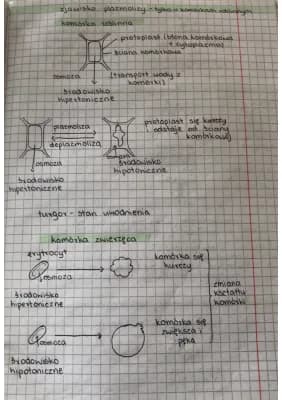 zjawisko plazmolizy - tylko w komórkach roślinnych
komórka roślinna
protoplast (błona komórkowa
+ cytoplazma)
ściana komórkowa
osmoza
(transport wody z
komórki)
środowisko
hipertoniczne
plazmoliza
deplazmoliza
protoplast się kurczy
odstaje od ściany
komórkowej
osmoza
środowisko
hipertoniczne
środowisko
hipotoniczne
turgor - stan uwodnienia
komórka zwierzęca
erytrocyt
osmoza
środowisko
hipertoniczne
komórka się
kurczy
zmiana
kształtu
komórki
osmoza
środowisko
hipotoniczne
komórka się
zwiększa i
pęka